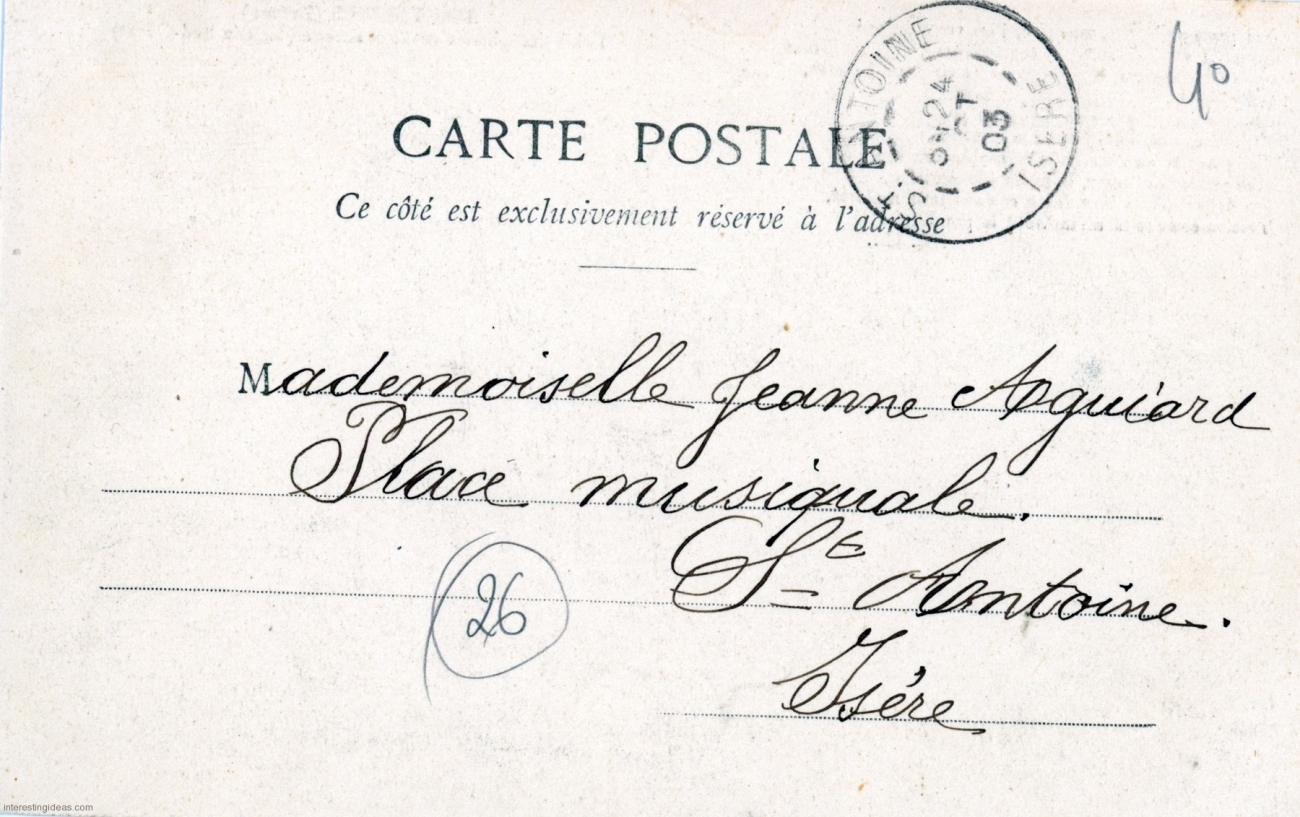 CARTE POSTALE
Ce côté est exclusivement réservé à l'adresse
ST ANTOINE
24
03
ISERE
40
Mademoiselle Jeanne Aguiard
Place musiquale.
St Antoine.
Isère
26
interestingideas.com